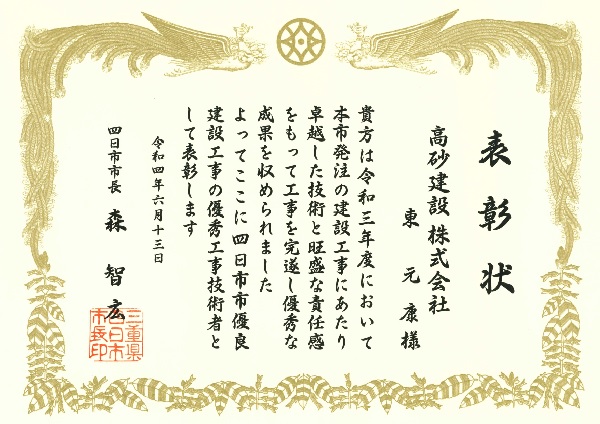 表彰状
高砂建設株式会社
東元康様
貴方は令和三年度において
本市発注の建設工事にあたり
卓越した技術と旺盛な責任感
をもって工事を完遂し優秀な
成果を収められました
よってここに四日市市優良
建設工事の優秀工事技術者と
して表彰します
令和四年六月十三日
四日市市長 森智広
三重県
四日市
市長印